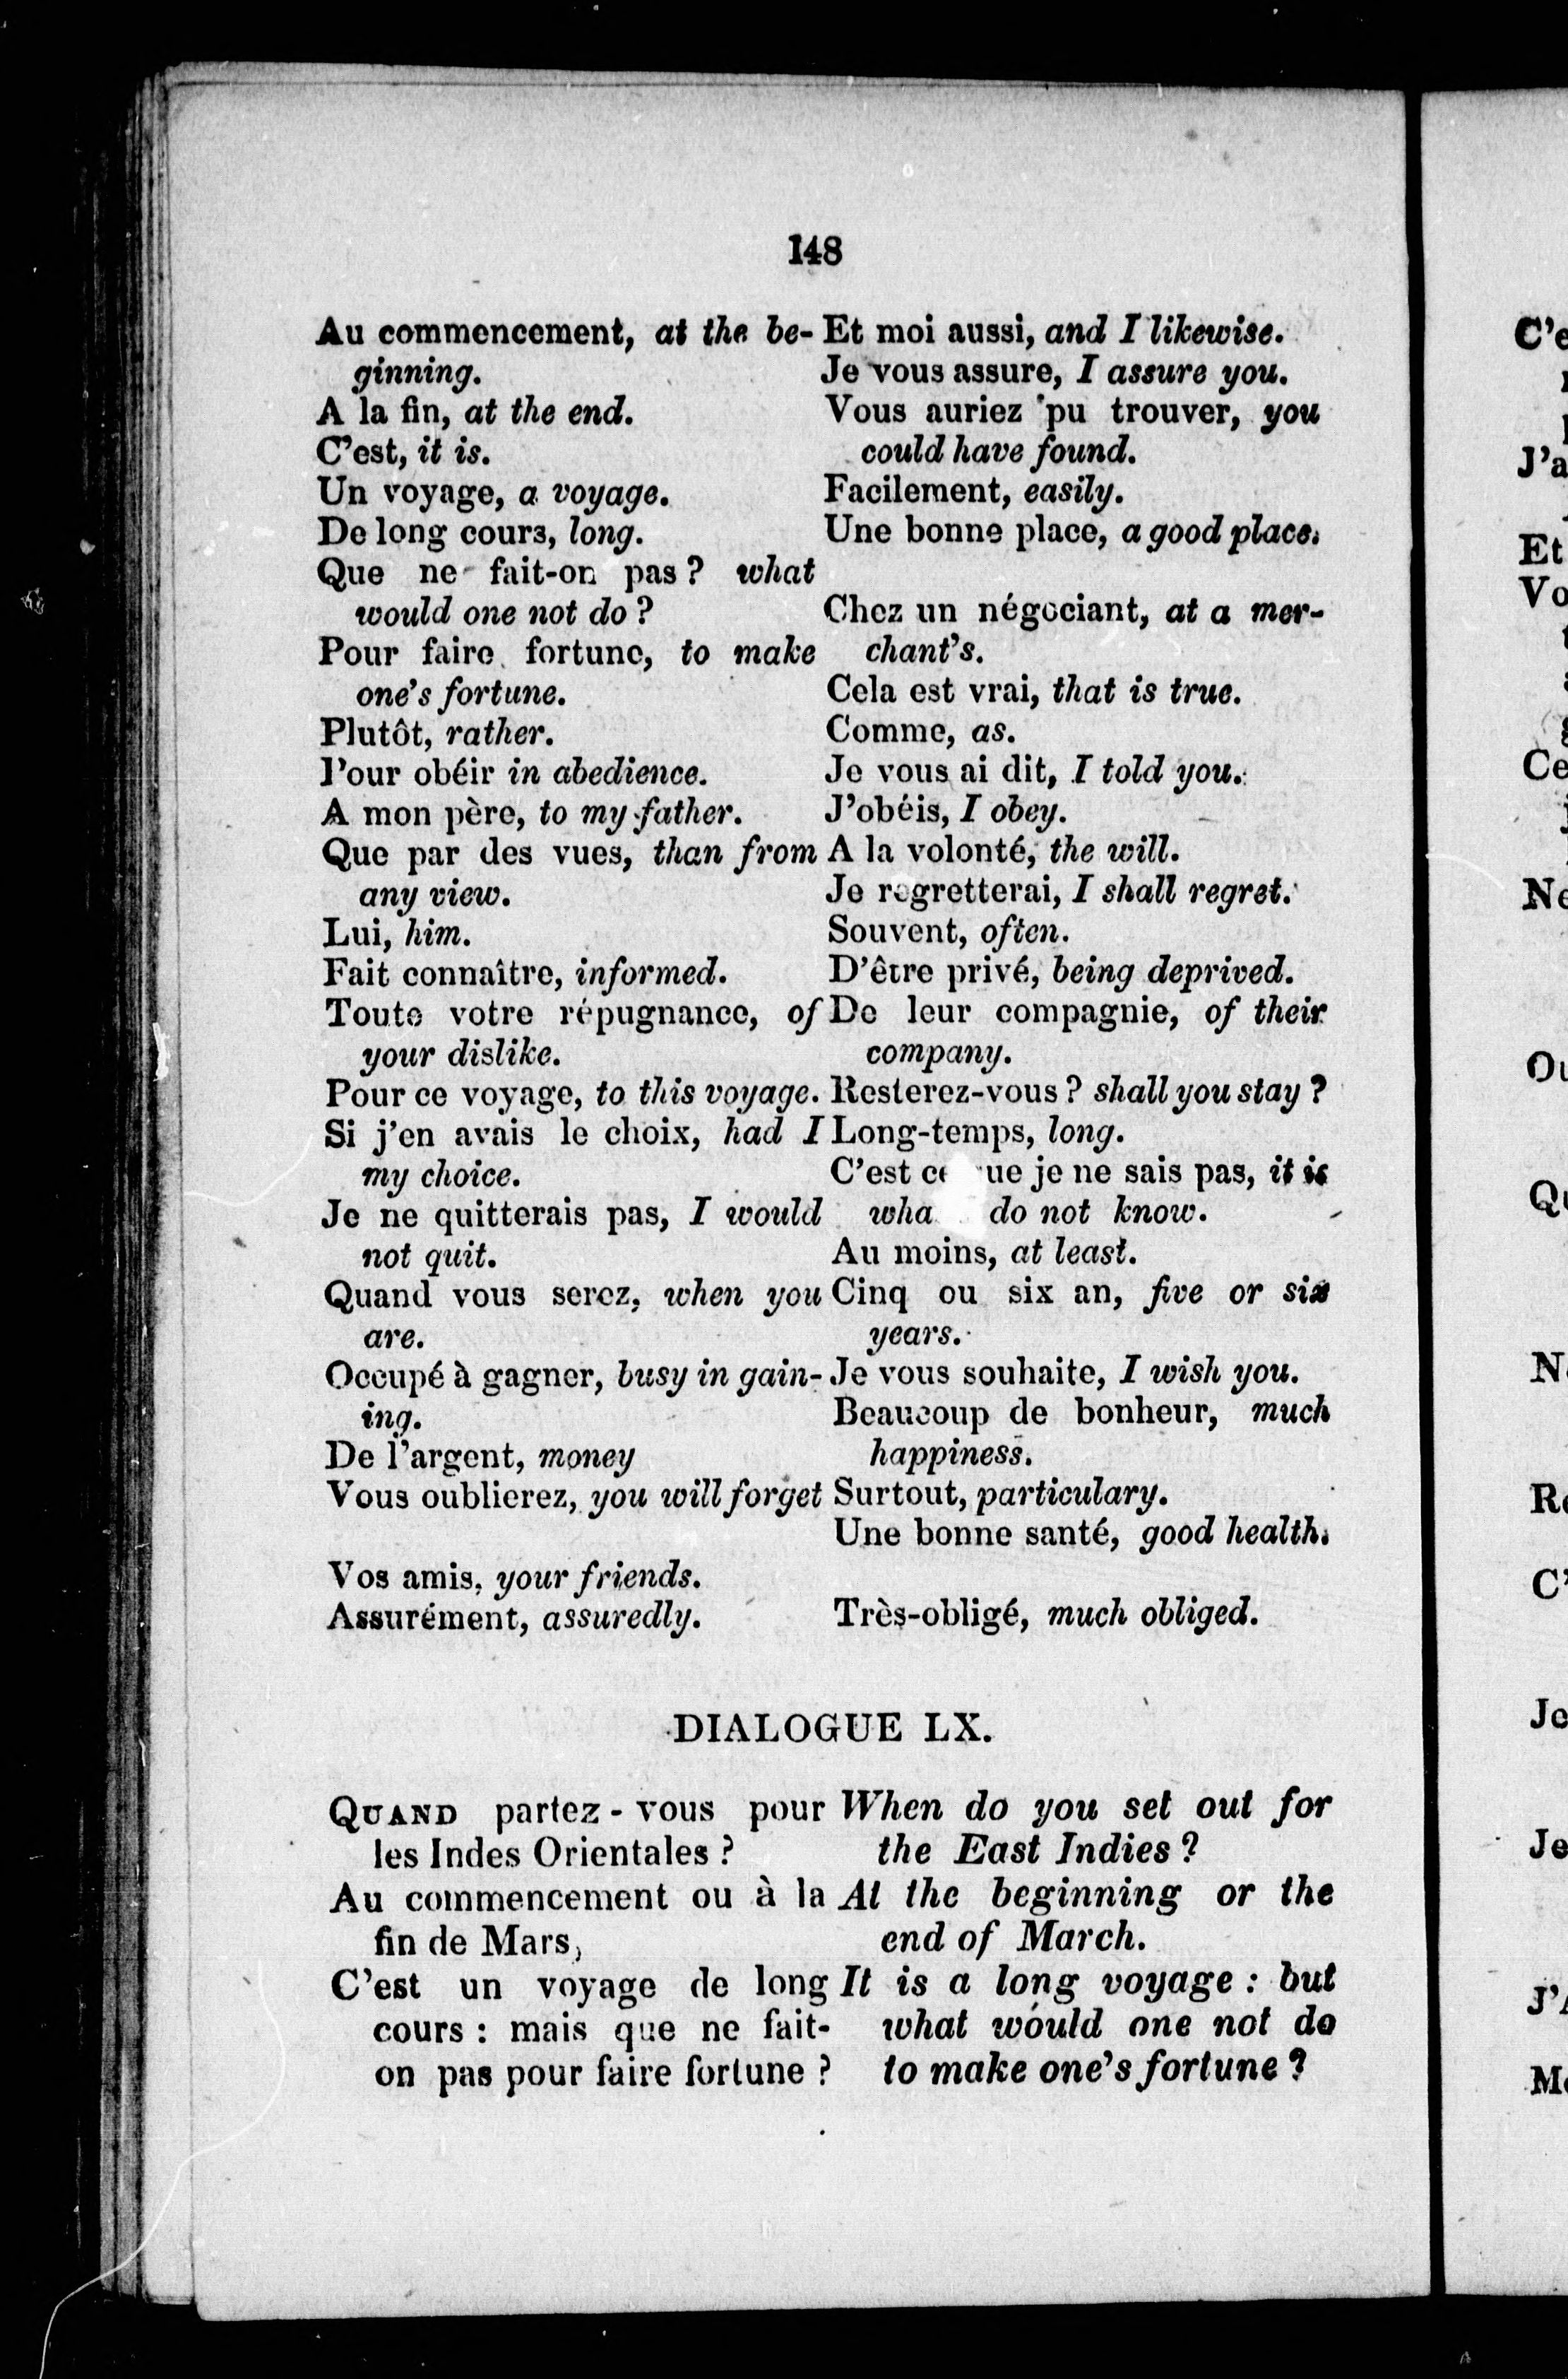 148
Au commencement, at the be-
ginning.
A la fin, at the end.
C'est, it is.
Un voyage, a voyage.
De long cours, long.
Que ne fait-on pas ? what
would one not do ?
Pour faire fortune, to make
one's fortune.
Plutôt, rather.
Pour obéir in abedience.
A mon père, to my father.
Que par des vues, than from
any view.
Lui, him.
Fait connaître, informed.
Toute votre répugnance, of
your dislike.
Pour ce voyage, to this voyage.
Si j'en avais le choix, had I
my choice.
Je ne quitterais pas, I would
not quit.
Quand vous serez, when you
are.
Occupé à gagner, busy in gain-
ing.
De l'argent, money
Vous oublierez, you will forget
Vos amis, your friends.
Assurément, assuredly.
Et moi aussi, and I likewise.
Je vous assure, I assure you.
Vous auriez pu trouver, you
could have found.
Facilement, easily.
Une bonne place, a good place.
Chez un négociant, at a mer-
chant's.
Cela est vrai, that is true.
Comme, as.
Je vous ai dit, I told you.
J'obéis, I obey.
A la volonté, the will.
Je regretterai, I shall regret.
Souvent, often.
D'être privé, being deprived.
De leur compagnie, of their
company.
Resterez-vous ? shall you stay ?
Long-temps, long.
C'est ue je ne sais pas, it is
wha do not know.
Au moins, at least.
Cinq ou six an, five or six
years.
Je vous souhaite, I wish you.
Beaucoup de bonheur, much
happiness.
Surtout, particulary.
Une bonne santé, good health.
Très-obligé, much obliged.
DIALOGUE LX.
QUAND partez-vous pour
les Indes Orientales ?
Au commencement ou à la
fin de Mars,
C'est un voyage de long
cours : mais que ne fait-
on pas pour faire fortune ?
When do you set out for
the East Indies ?
At the beginning or the
end of March.
It is a long voyage : but
what would one not do
to make one's fortune ?
C'e
J'a
Et
Vo
Ce
Ne
Ou
Qu
No
Re
C'
Je
Je
J'A